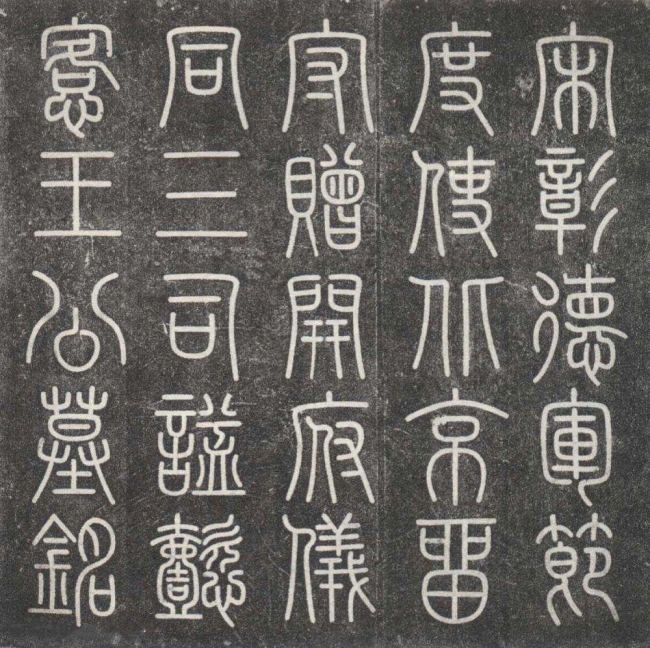 宋彰德軍節
度使北京留
守贈開府儀
同三司謚懿
愙王公墓銘